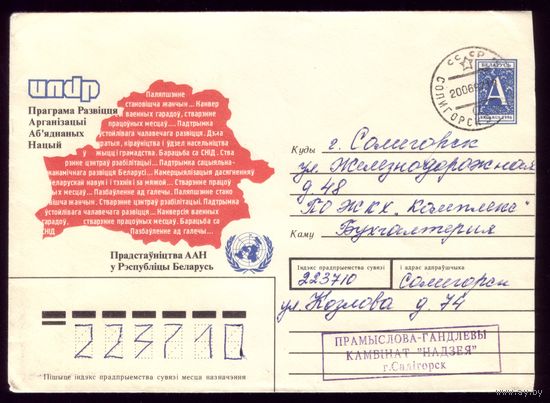 undp
Праграма Развіцця
Арганізацыі
Аб'яднаных
Нацый
Паляпшэнне
становішча жанчын... Канвер
ваенных гарадоў, стварэнне
працоўных месцаў... Падтрымка
ўстойлівага чалавечага развіцця.
кіраўніцтва і ўдзел насельніцтва
ў жыцці грамадства. Барацьба са СНІД. Ства
рэнне цэнтраў рэабілітацыі... Падтрымка сацыяльна-
эканамічнага развіцця Беларусі.
беларускай навукі і тэхнікі за мяжой... Стварэнне працоў
ных месцаў... Пазбаўленне ад галечы. Паляпшэнне стано
вішча жанчын. Стварэнне цэнтраў рэабілітацыі. Падтрымка
ўстойлівага чалавечага развіцця... Канверсія ваенных
гарадоў, стварэнне працоўных месцаў. Барацьба са
СНІД Пазбаўленне ад галечы...
Прадстаўніцтва ААН
у Рэспубліцы Беларусь
СССР
200695
СОЛИГОРСК
БЕЛАРУСЬ
А
Куды г. Солигорск
ул. Железнодорожная
д. 48
ПО ЖКХ "Комплекс"
Каму Бухгалтерия
Індэкс прадпрыемства сувязі і адрас адпраўшчыка
223710 Солигорск
ул. Козлова д. 74
223710
Пішыце індэкс прадпрыемства сувязі месца назначэння
ПРАМЫСЛОВА-ГАНДЛЕВЫ
КАМБІНАТ "НАДЗЕЯ"
г. Салігорск
www.ay.by